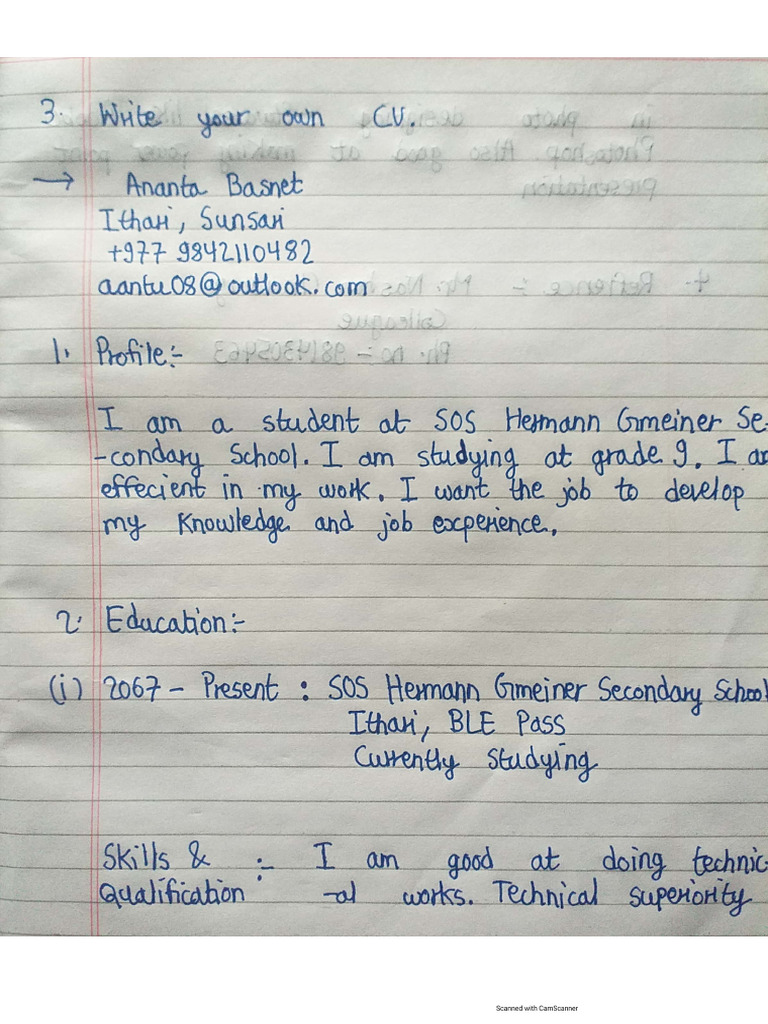 3. Write your own CV.
→ Ananta Basnet
Ithari, Sunsari
+977 9842110482
aantu08@outlook.com
1. Profile:-
I am a student at SOS Hermann Gmeiner Se-
-condary School. I am studying at grade 9. I am
effecient in my work. I want the job to develop
my knowledge and job excperience.
2. Education:-
(i) 2067 - Present : SOS Hermann Gmeiner Secondary School
Ithari, BLE Pass
Currently Studying
Skills & :- I am good at doing technic-
Qualification -al works. Technical superiority
Scanned with CamScanner